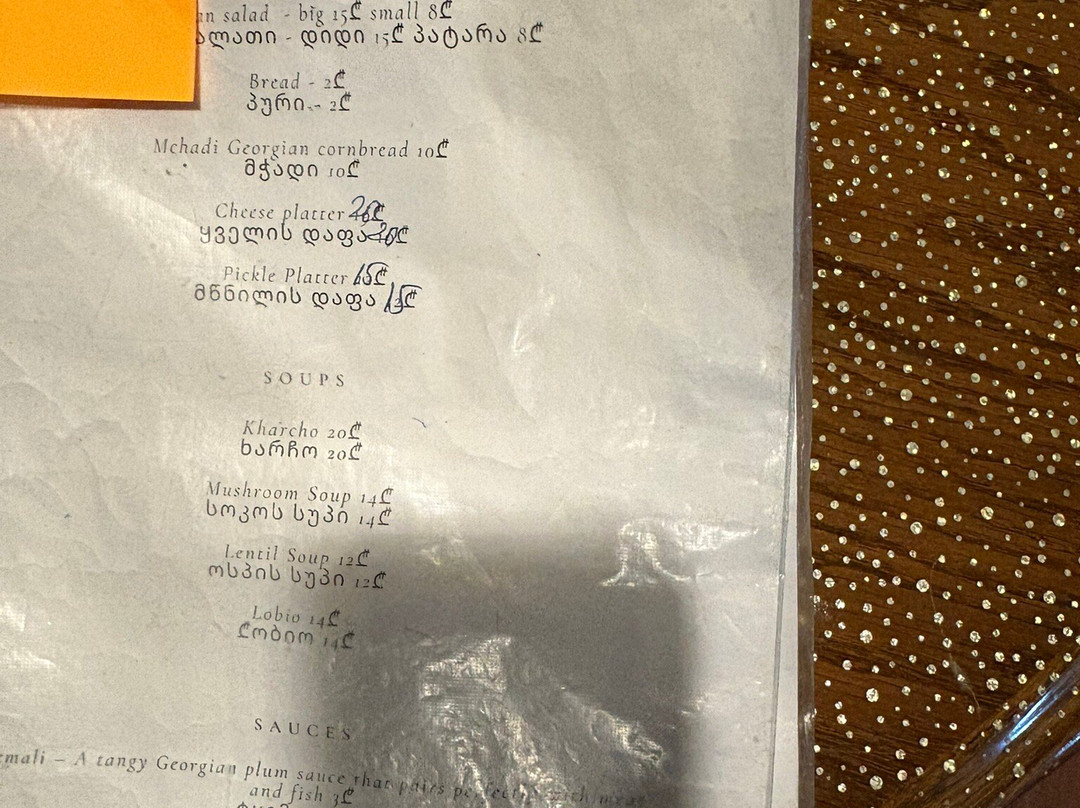 salad - big 15₾ small 8₾
დიდი 15₾ პატარა 8₾
Bread - 2₾
პური - 2₾
Mchadi Georgian cornbread 10₾
მჭადი 10₾
Cheese platter 20₾
ყველის დაფა 20₾
Pickle Platter 15₾
მწნილის დაფა 15₾
SOUPS
Kharcho 20₾
ხარჩო 20₾
Mushroom Soup 14₾
სოკოს სუპი 14₾
Lentil Soup 12₾
ოსპის სუპი 12₾
Lobio 14₾
ლობიო 14₾
SAUCES
– A tangy Georgian plum sauce that pairs perfectly with meat
and fish 3₾